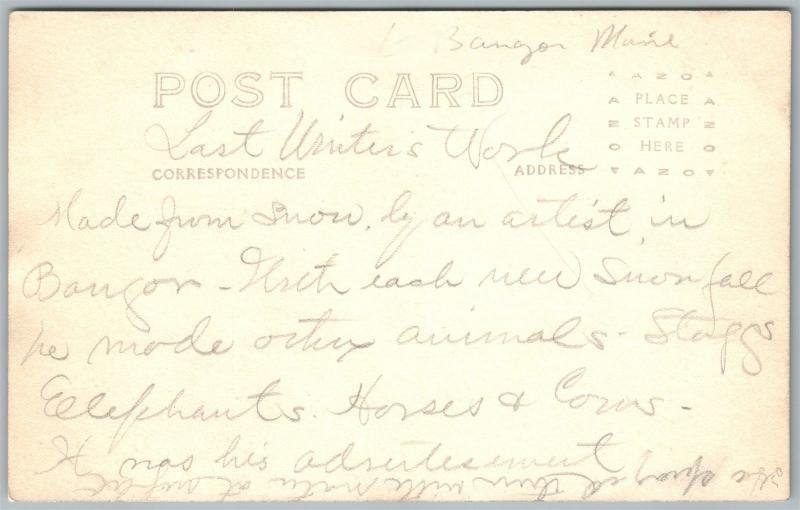 Bangor Maine
POST CARD
AZO
PLACE
STAMP
HERE
AZO
Last Winters Work
CORRESPONDENCE
ADDRESS
Made from Snow, by an artist in
Bangor - With each new Snow fall
he made other animals - Staggs
Ellephants. Horses & Cows -
It was his advertesement
He sprayed them with water at